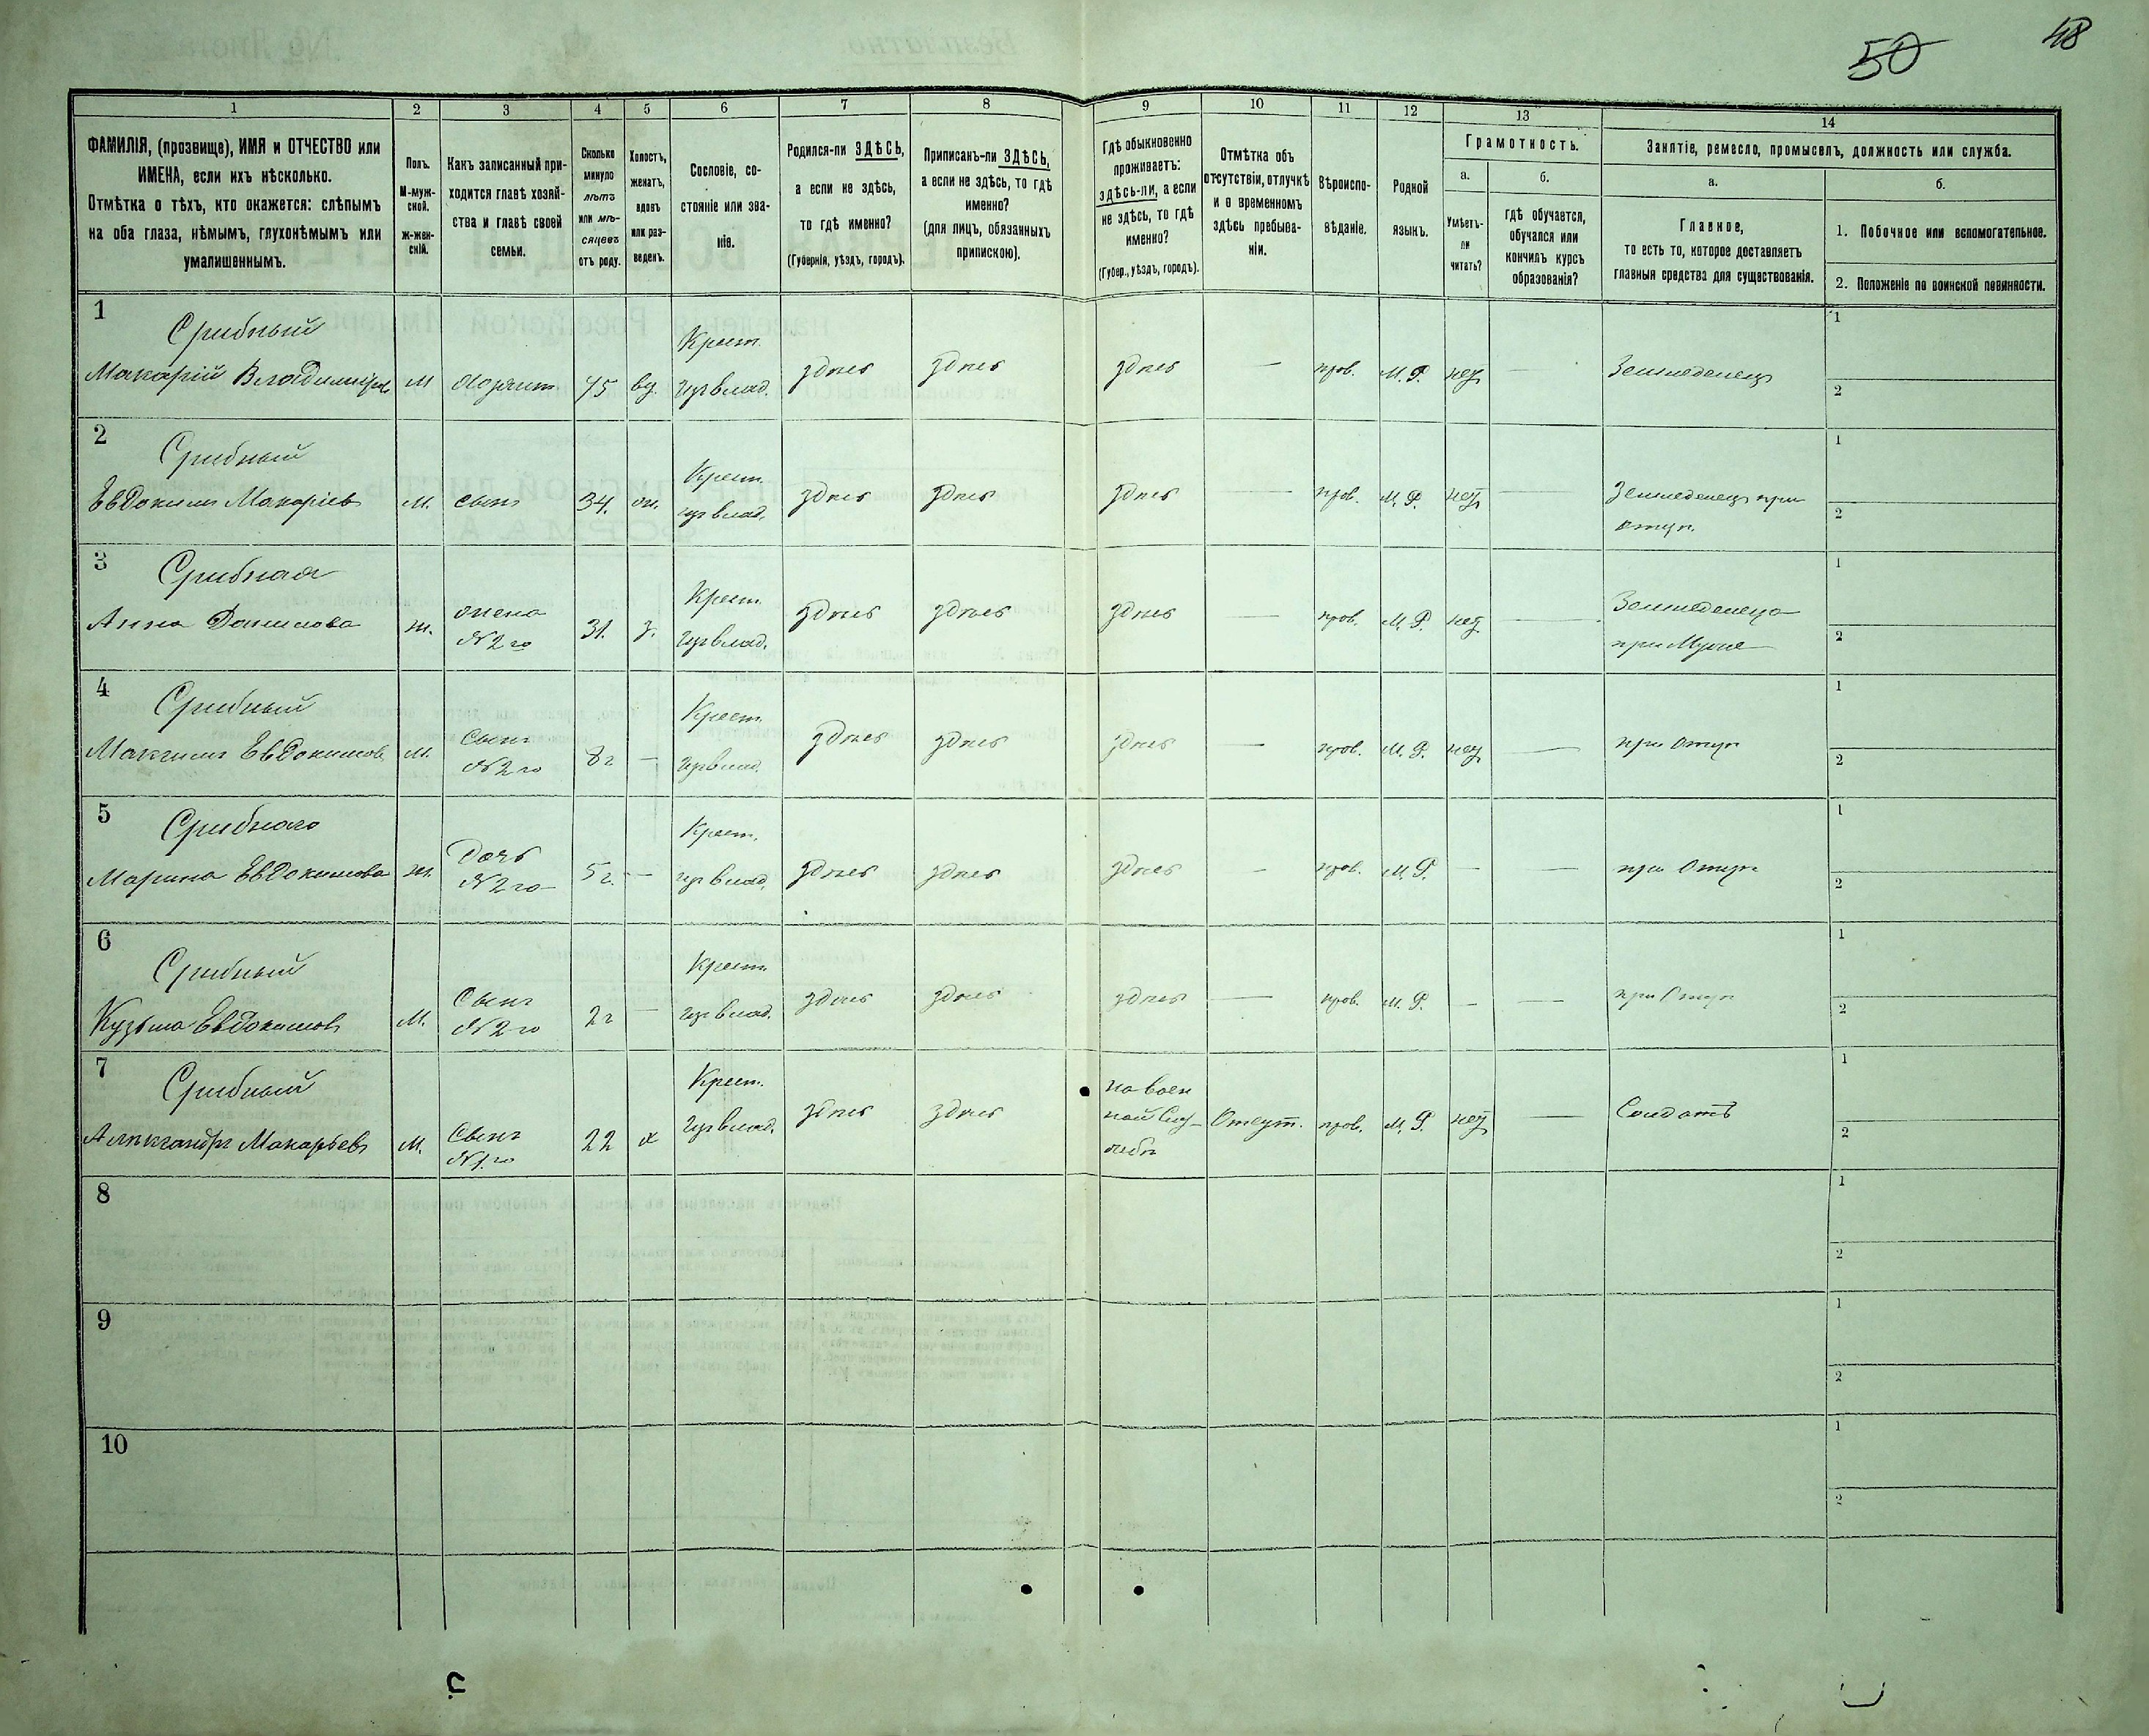 50 48
1 2 3 4 5 6 7 8 9 10 11 12 13 14
ФАМИЛІЯ, (прозвище), ИМЯ и ОТЧЕСТВО или
ИМЕНА, если ихъ нѣсколько.
Отмѣтка о тѣхъ, кто окажется: слѣпымъ
на оба глаза, нѣмымъ, глухонѣмымъ или
умалишеннымъ.
Полъ.
М-муж-
ской.
ж-жен-
скій.
Какъ записанный при-
ходится главѣ хозяй-
ства и главѣ своей
семьи.
Сколько
минуло
лѣтъ
или мѣ-
сяцевъ
отъ роду.
Холостъ,
женатъ,
вдовъ
или раз-
веденъ.
Сословіе, со-
стояніе или зва-
ніе.
Родился-ли ЗДѢСЬ,
а если не здѣсь,
то гдѣ именно?
(Губернія, уѣздъ, городъ).
Приписанъ-ли ЗДѢСЬ,
а если не здѣсь, то гдѣ
именно?
(для лицъ, обязанныхъ
припискою).
Гдѣ обыкновенно
проживаетъ:
здѣсь-ли, а если
не здѣсь, то гдѣ
именно?
(Губер., уѣздъ, городъ).
Отмѣтка объ
отсутствіи, отлучкѣ
и о временномъ
здѣсь пребыва-
ніи.
Вѣроиспо-
вѣданіе.
Родной
языкъ.
Грамотность.
а.
Умѣетъ-
ли
читать?
б.
гдѣ обучается,
обучался или
кончилъ курсъ
образованія?
Занятіе, ремесло, промыселъ, должность или служба.
а.
Главное,
то есть то, которое доставляетъ
главныя средства для существованія.
б.
1. Побочное или вспомогательное.
2. Положеніе по воинской повинности.
1
Срибный
Макарій Владиміровъ М Хозяин 75 вд. Крест. из влад. здѣсь здѣсь здѣсь — прав. М. Р. нѣт — Земледелец
1
2
2
Срибный
Евдоким Макаріев М. сын 34. ж. Крест. из влад. здѣсь здѣсь здѣсь — прав. М. Р. нѣт — Земледелец при
отцѣ.
1
2
3
Срибная
Анна Данилова ж. жена
№ 2го 31. з. Крест. из влад. здѣсь здѣсь здѣсь — прав. М. Р. нѣт — Земледелец
при Мужѣ
1
2
4
Срибный
Максим Евдокимов М. Сын
№ 2го 8 г — Крест. из влад. здѣсь здѣсь здѣсь — прав. М. Р. нѣт — при Отцѣ
1
2
5
Срибного
Марина Евдокимова ж. Дочь
№ 2го 5 г. — Крест. из влад. здѣсь здѣсь здѣсь — прав. М. Р. — — при Отцѣ
1
2
6
Срибный
Кузьма Евдокимов М. Сын
№ 2го 2 г — Крест. из влад. здѣсь здѣсь здѣсь — прав. М. Р. — — при Отцѣ
1
2
7
Срибный
Александр Макарьев М. Сын
№ 1го 22 х Крест. из влад. здѣсь здѣсь на воен
ной Слу-
жбѣ Отсут. прав. М. Р. нѣт — Солдатъ
1
2
8
1
2
9
1
2
10
1
2